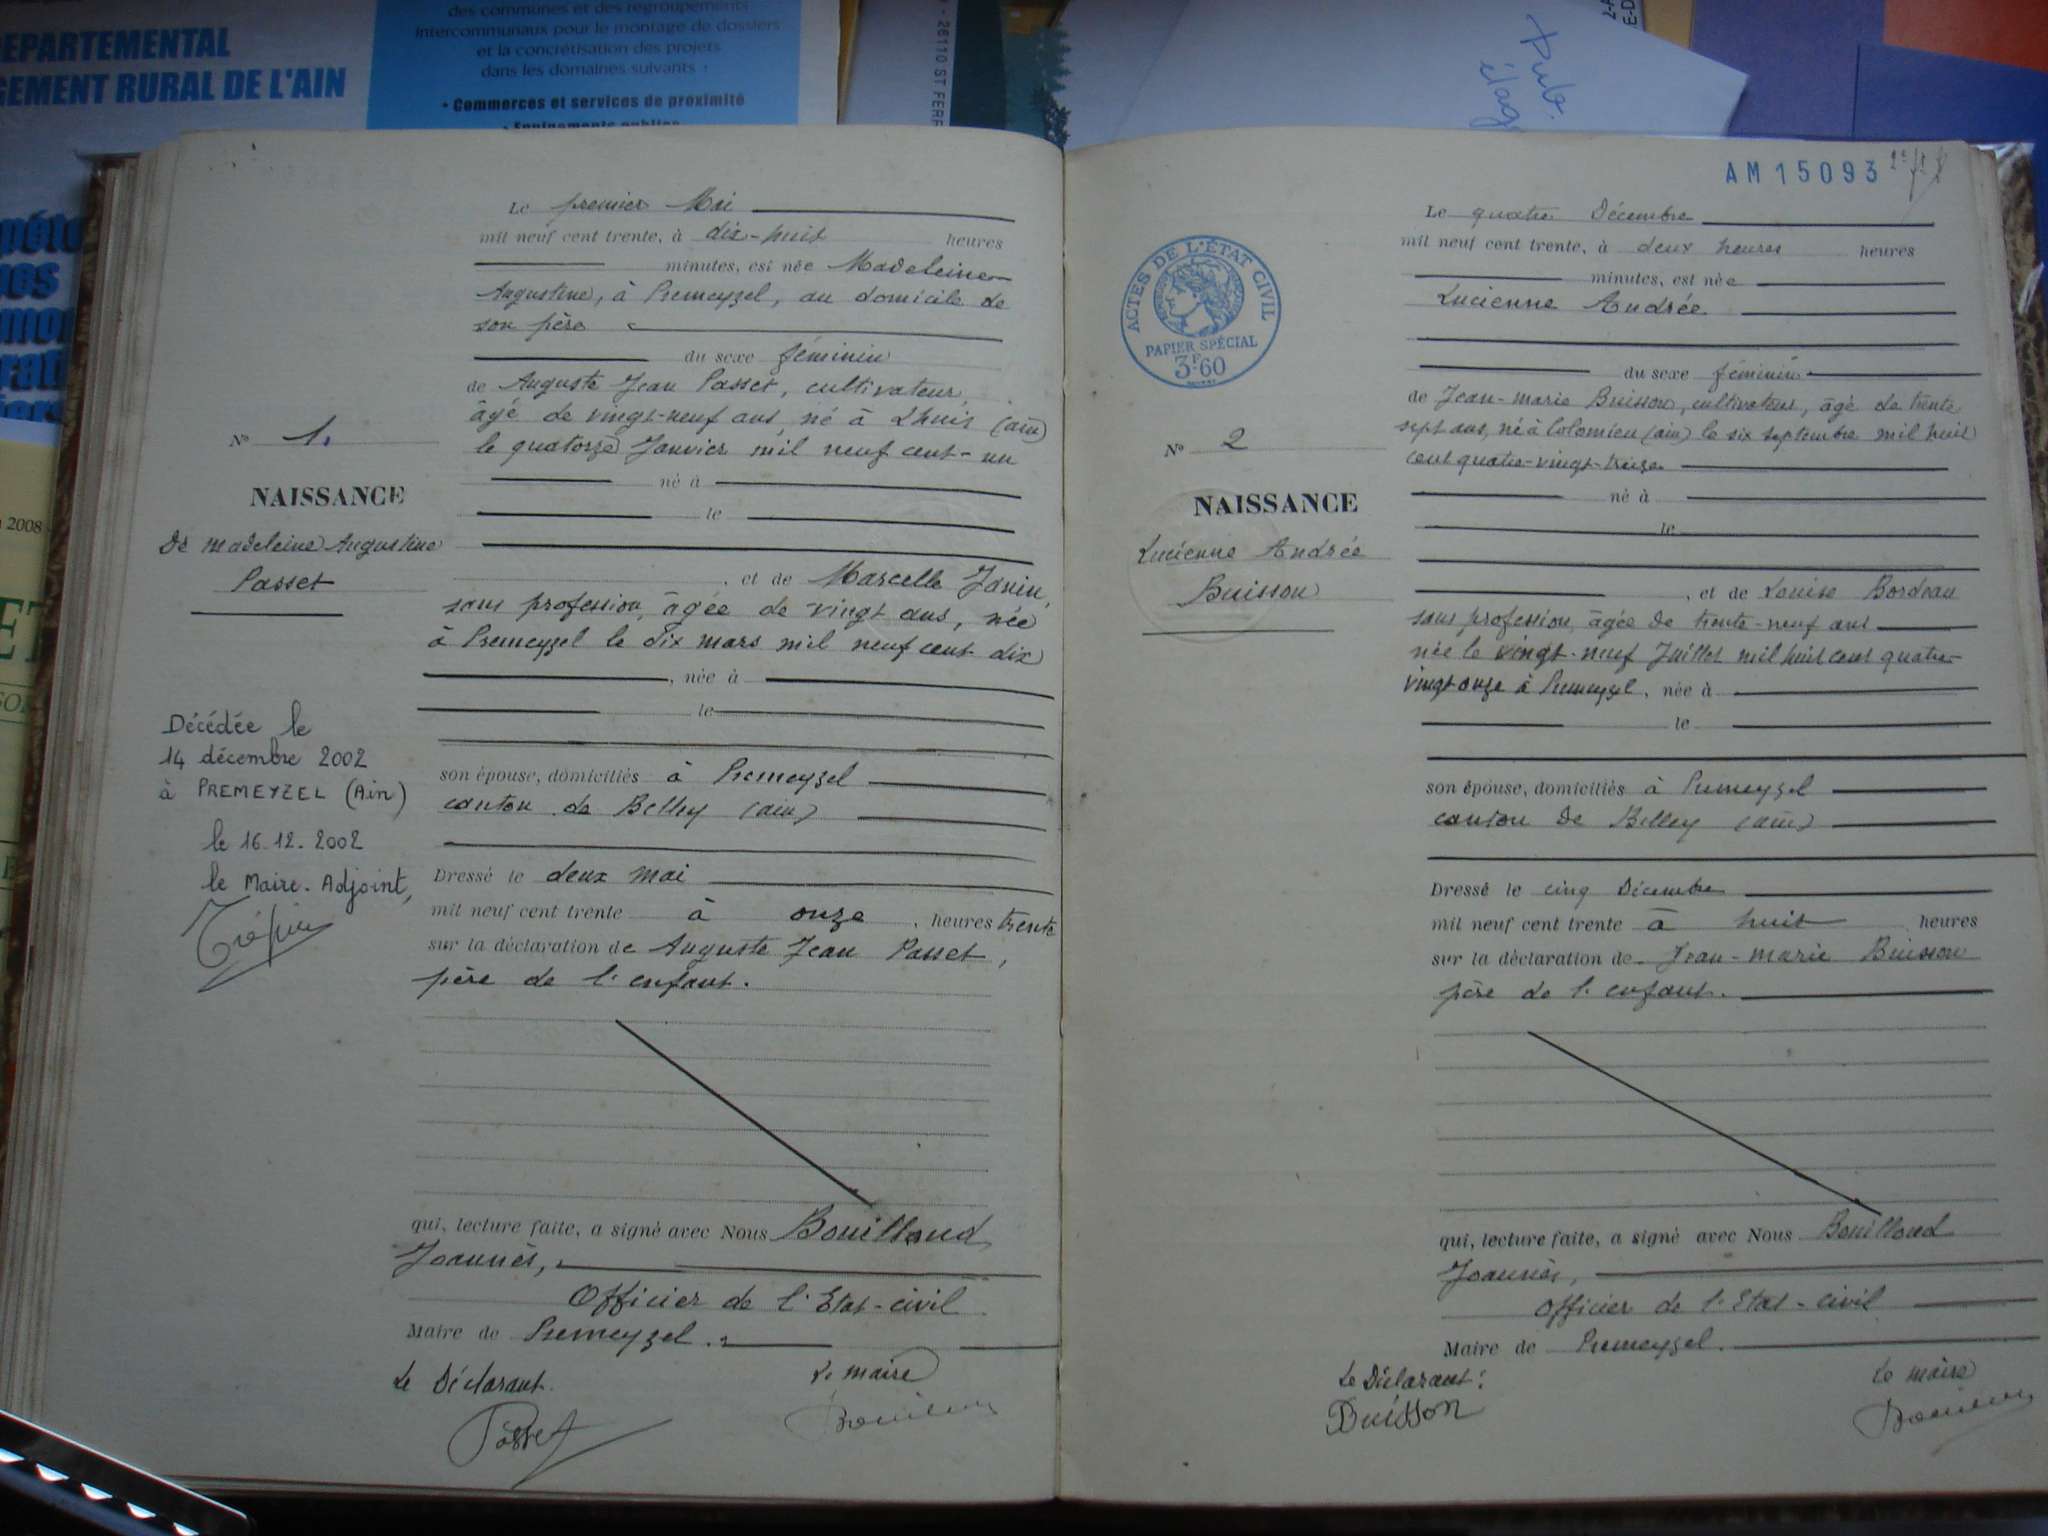 DEPARTEMENTAL
GEMENT RURAL DE L'AIN
des communes et des regroupements
intercommunaux pour le montage de dossiers
et la concrétisation des projets
dans les domaines suivants :
• Commerces et services de proximité
• Equipements publics
28110 ST FERR
Pub.
élag
2008
Le premier Mai
mil neuf cent trente, à dix-huit heures
minutes, est née Madeleine
Augustine, à Premeyzel, au domicile de
son père
du sexe féminin
de Auguste Jean Passet, cultivateur,
âgé de vingt-neuf ans, né à Lhuis (ain)
le quatorze Janvier mil neuf cent-un
né à
le
, et de Marcelle Janin,
sans profession, âgée de vingt ans, née
à Premeyzel le dix mars mil neuf cent dix
, née à
le
son épouse, domiciliés à Premeyzel
canton de Belley (ain)
Dressé le deux mai
mil neuf cent trente à onze , heures trente
sur la déclaration de Auguste Jean Passet,
père de l'enfant.
qui, lecture faite, a signé avec Nous Bouilloud
Joannès,
Officier de l'Etat-civil
Maire de Premeyzel.
Le Déclarant.
Le maire
Passet
N° 1.
NAISSANCE
De Madeleine Augustine
Passet
Décédée le
14 décembre 2002
à PREMEYZEL (Ain)
le 16.12.2002
le Maire-Adjoint,
AM15093
ACTES DE L'ÉTAT CIVIL
PAPIER SPÉCIAL
3F.60
N° 2
NAISSANCE
Lucienne Andrée
Buisson
Le quatre Décembre
mil neuf cent trente, à deux heures heures
minutes, est née
Lucienne Andrée.
du sexe féminin
de Jean-marie Buisson, cultivateur, âgé de trente
sept ans, né à Colomieu (ain) le six septembre mil huit
cent quatre-vingt-treize
né à
le
, et de Louise Bordeau
sans profession, âgée de trente-neuf ans
née le vingt-neuf Juillet mil huit cent quatre-
vingt onze à Premeyzel, née à
le
son épouse, domiciliés à Premeyzel
canton de Belley (ain)
Dressé le cinq Décembre
mil neuf cent trente à huit heures
sur la déclaration de Jean-marie Buisson
père de l'enfant.
qui, lecture faite, a signé avec Nous Bouilloud
Joannès,
Officier de l'Etat-civil
Maire de Premeyzel.
Le Déclarant:
Le maire
Buisson